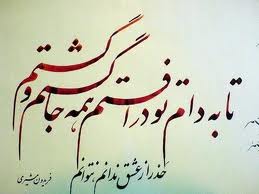 تا به دام تو درافتم همه جا گشتم و گشتم
حذر از عشق ندانم نتوانم
فریدون مشیری